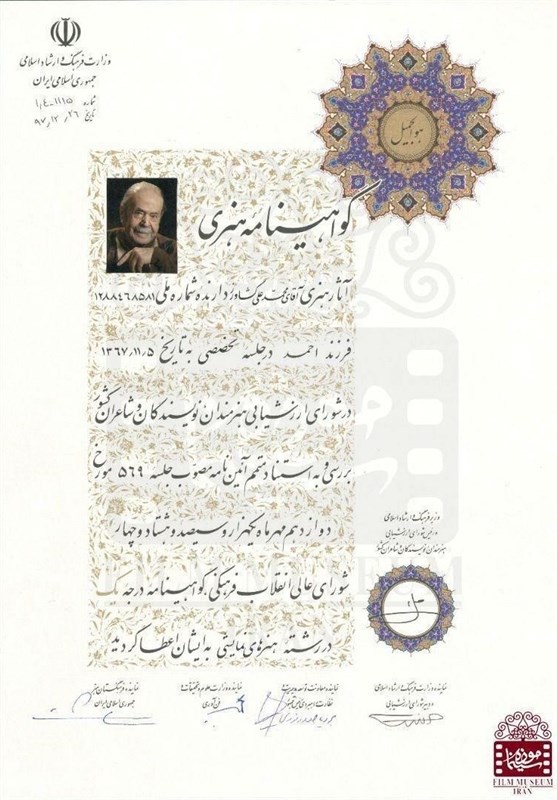 وزارت فرهنگ و ارشاد اسلامی
جمهوری اسلامی ایران
شماره ۱,۴۰۱۱۱۵
تاریخ ۹۷,۱۲,۲۶
هوالجمیل
گواهینامه هنری
آثار هنری آقای محمدعلی کشاورز دارنده شماره ملی ۱۲۸۸۴۶۸۵۸۱
فرزند احمد در جلسه تخصصی به تاریخ ۱۳۶۷,۱۱,۵
در شورای ارزشیابی هنرمندان نویسندگان و شاعران کشور
بررسی و به استناد متمم آئین نامه مصوب جلسه ۵۶۹ مورخ
دوازدهم مهرماه یکهزار و سیصد و هشتاد و چهار
شورای عالی انقلاب فرهنگی، گواهینامه درجه یک
در رشته هنرهای نمایشی به ایشان اعطا گردید
وزیر فرهنگ و ارشاد اسلامی
و رئیس شورای ارزشیابی
هنرمندان نویسندگان و شاعران کشور
نماینده وزارت فرهنگ و ارشاد اسلامی
و دبیر شورای ارزشیابی
نماینده معاونت توسعه مدیریت و
نظارت راهبردی رئیس جمهور
نماینده وزارت علوم و تحقیقات و
فن آوری
نماینده فرهنگستان هنر
جمهوری اسلامی ایران
FILM MUSEUM
موزه سینما
FILM MUSEUM
IRAN